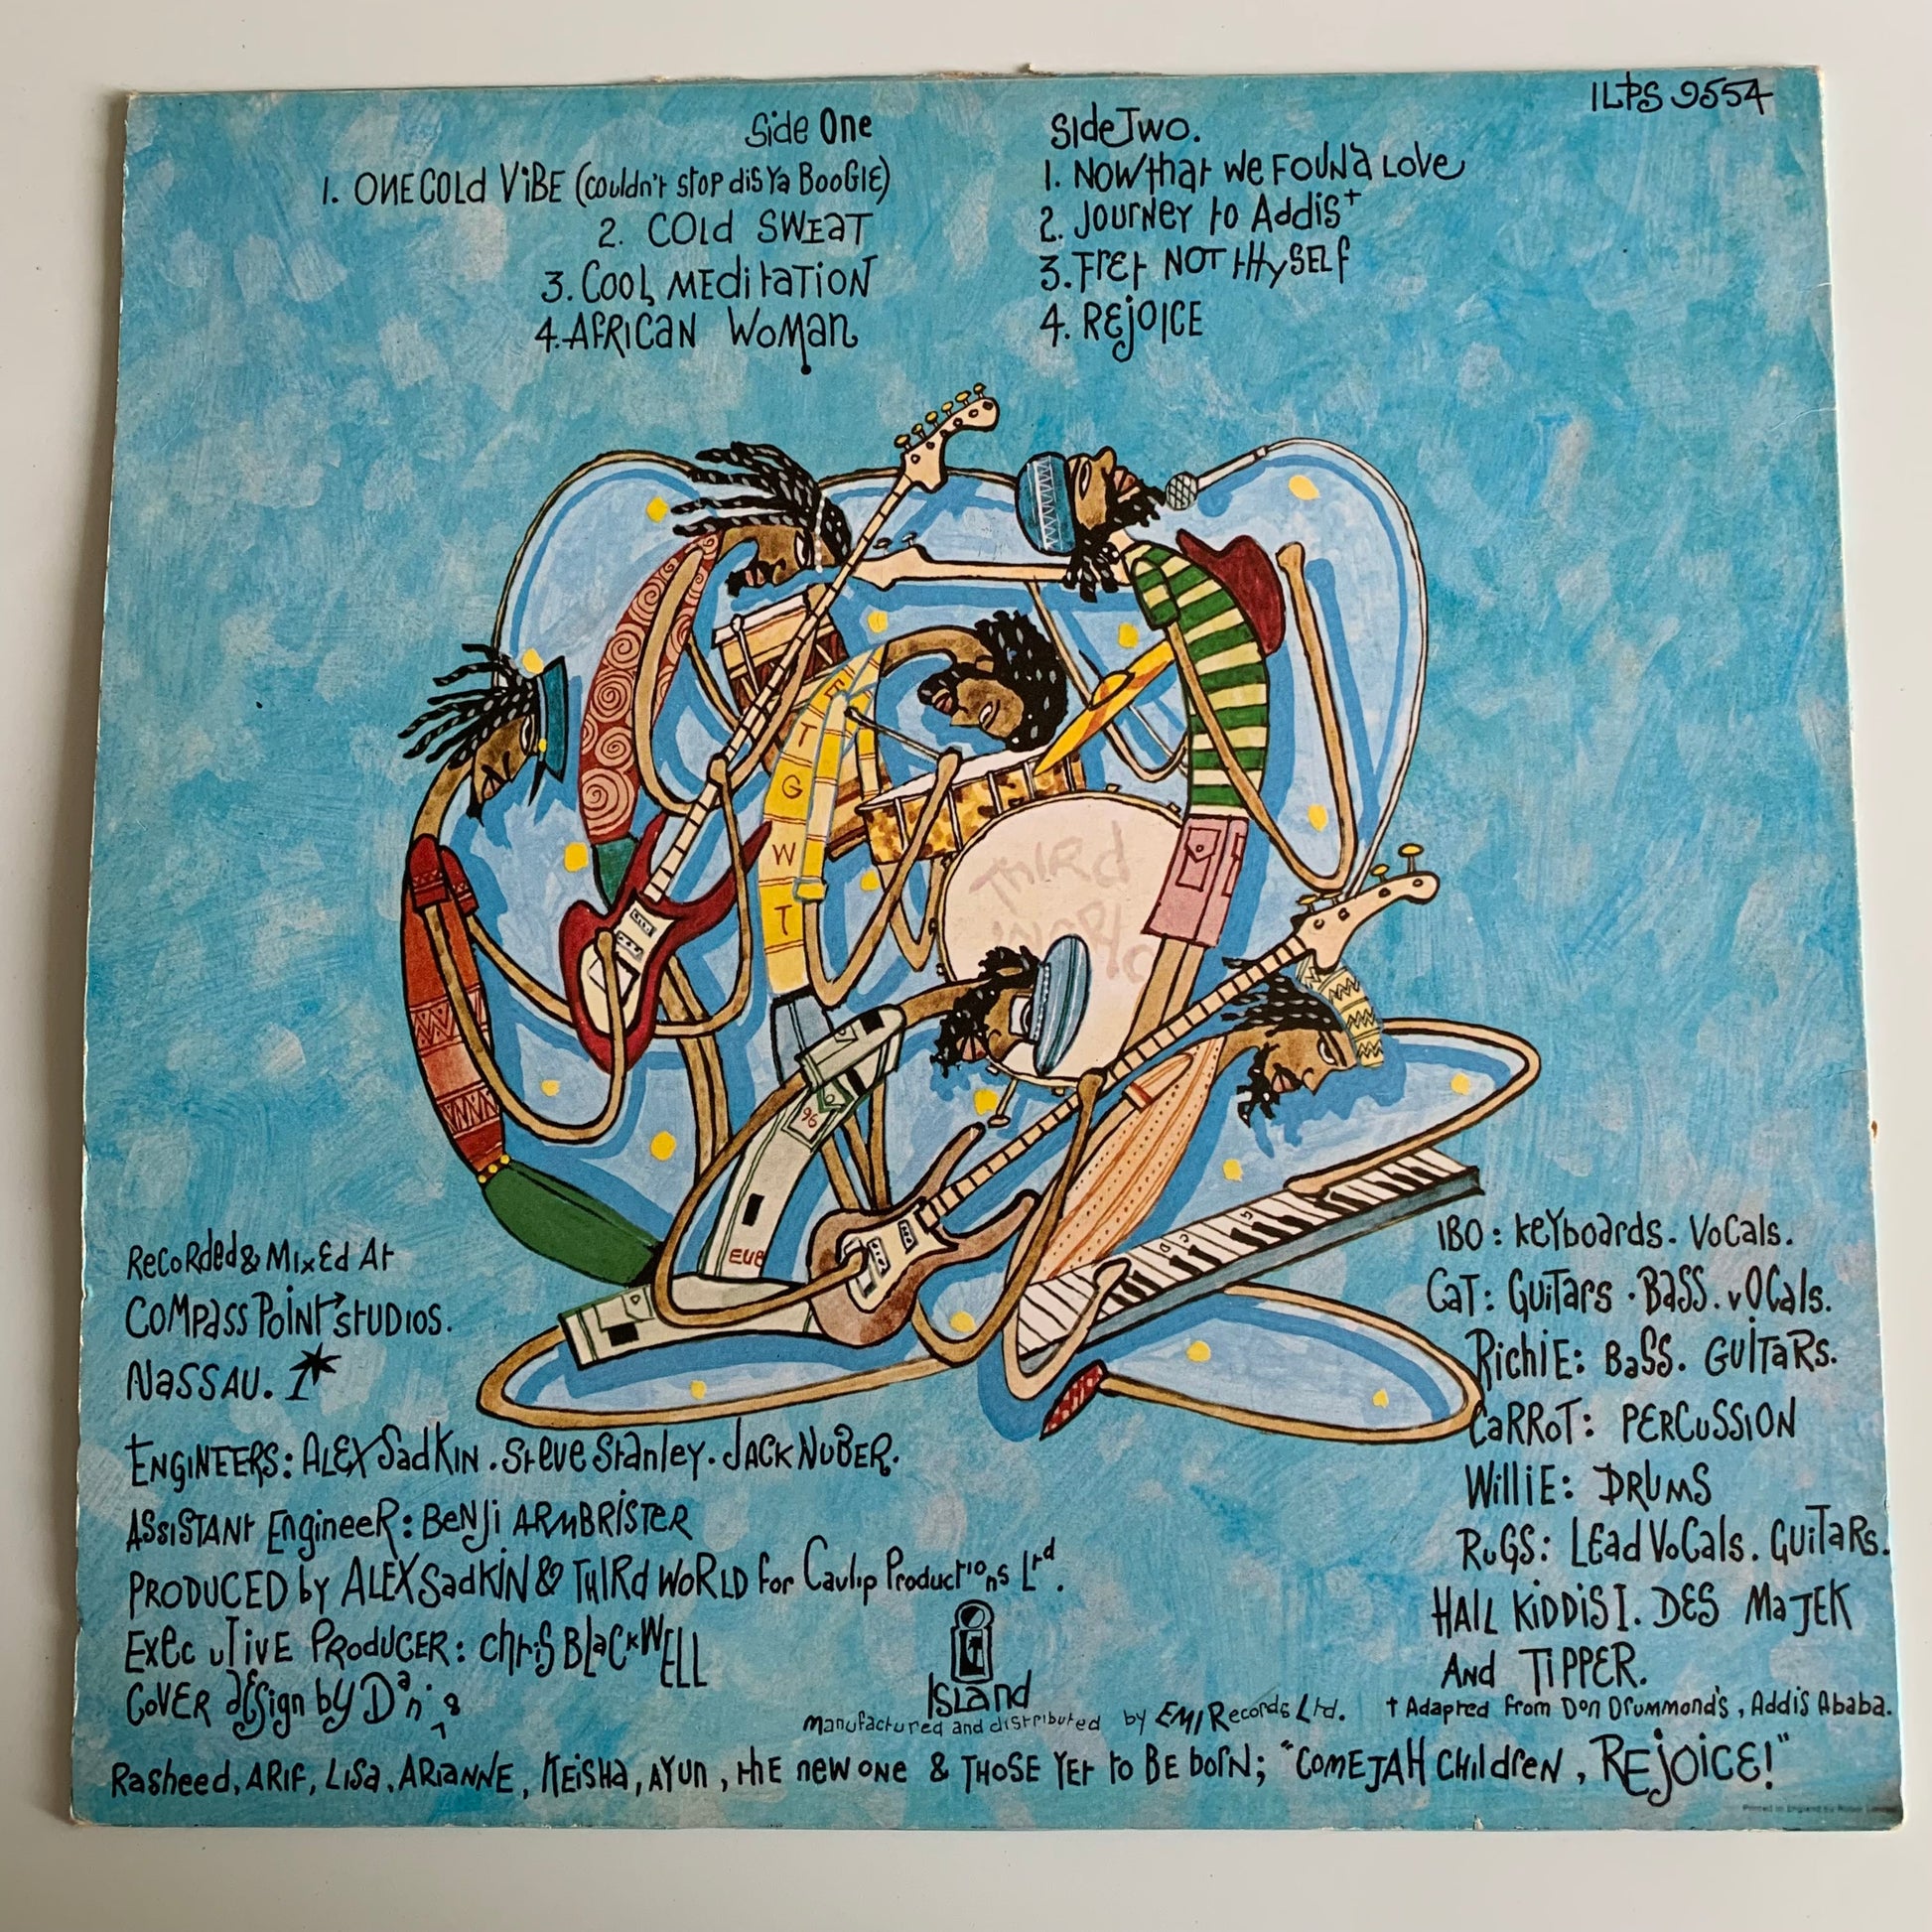 ILPS 9554
Side One
1. ONE COLD VIBE (COULDN'T STOP DIS YA BOOGIE)
2. COLD SWEAT
3. COOL MEDITATION
4. AFRICAN WOMAN
Side Two.
1. NOW that WE FOUND LOVE
2. JOURNEY to Addis†
3. FRET NOT tHySELf
4. REJOICE
E
T
G
W
T
THIRD
WORLD
96
EUB
Recorded & Mixed At
COMPASS POINT STUDIOS.
NASSAU.
ENGINEERS: ALEX SadKIN . Steve Stanley . JACK NUBER.
ASSISTANT Engineer: BENJI ARMBRISTER
PRODUCED by ALEX SadKIN & THIRD WORLD for Cavlip Productions Ltd.
EXECUTIVE PRODUCER: CHRIS BLACKWELL
COVER design by Dan'8
IBO: KEYboards. VoCals.
CAT: GUITARS . BASS. vOCals.
RichIE: BaSS. GUITaRs.
CaRRoT: PERCUSSION
WilliE: DRUMS
RUGS: LEad VoCals. GUITaRs.
HAIL KIDDIS I. DES MaJEK
And TIPPER.
ISLAND
Manufactured and distributed by EMI Records Ltd.
† Adapted From Don Drummond's, Addis Ababa.
Rasheed, ARIF, LISa, ARIANNE, KEISHA, AYUN, tHE new one & THOSE YET to BE born; "COME JAH CHILdrEN, REJOICE!"